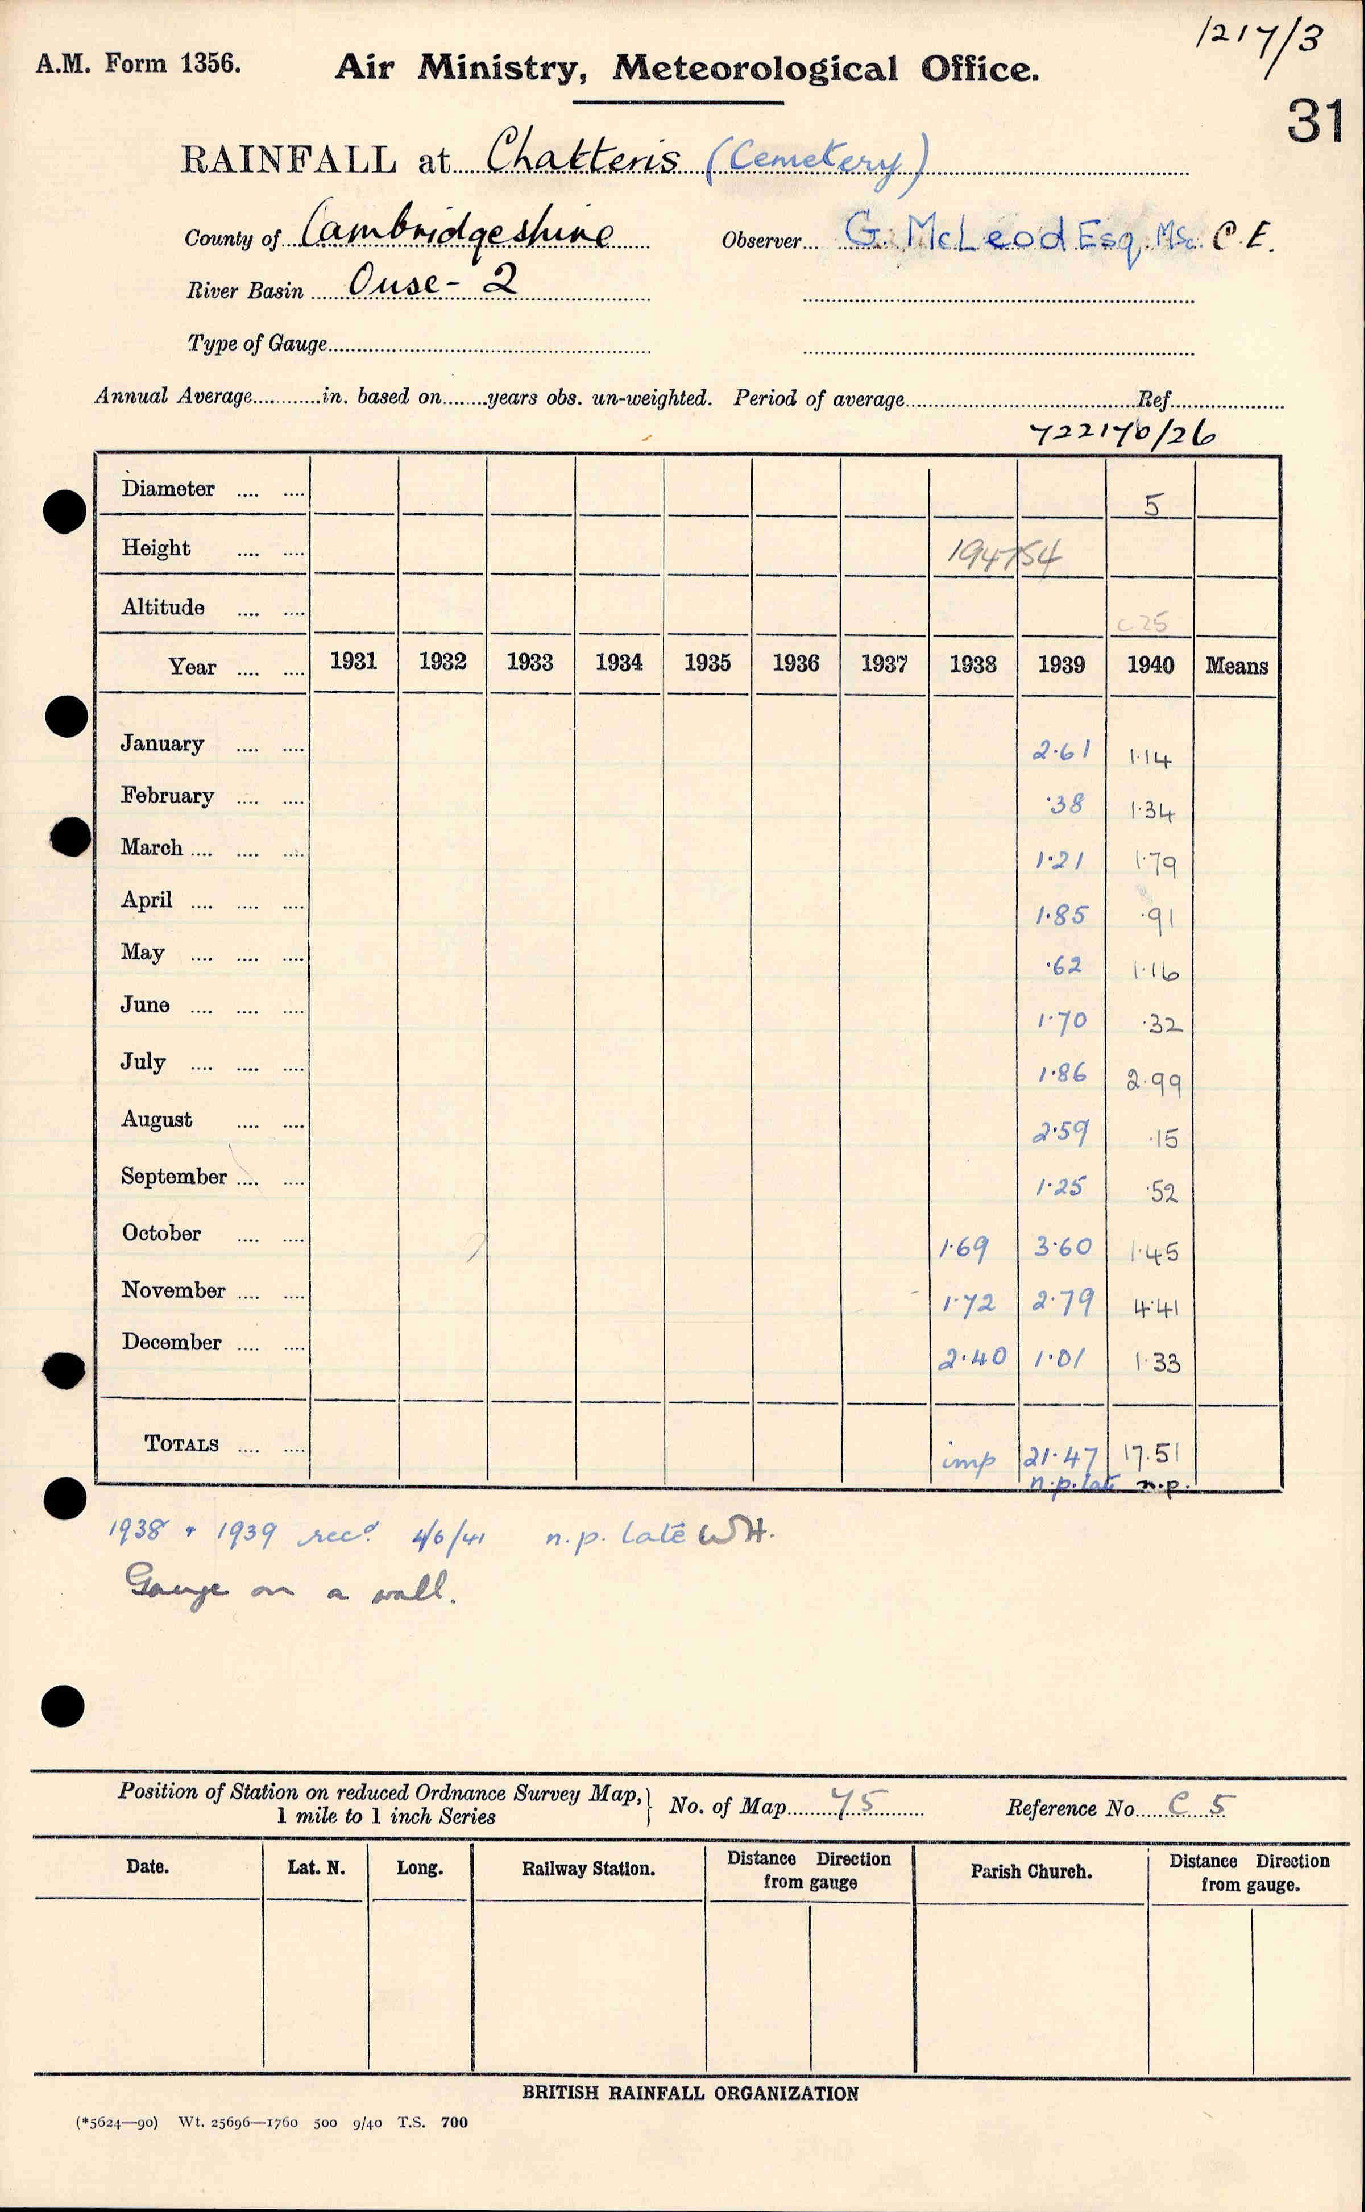 1217/3
A.M. Form 1356.
Air Ministry, Meteorological Office.
31
RAINFALL at Chatteris (Cemetery)
County of Cambridgeshire Observer G. McLeod Esq. MSc. C.E.
River Basin Ouse - 2
Type of Gauge
Annual Average in. based on years obs. un-weighted. Period of average Ref.
722170/26
Diameter 5
Height 194754
Altitude c 25
Year 1931 1932 1933 1934 1935 1936 1937 1938 1939 1940 Means
January 2.61 1.14
February .38 1.34
March 1.21 1.79
April 1.85 .91
May .62 1.16
June 1.70 .32
July 1.86 2.99
August 2.59 .15
September 1.25 .52
October 1.69 3.60 1.45
November 1.72 2.79 4.41
December 2.40 1.01 1.33
TOTALS imp 21.47 17.51
n.p. late n.p.
1938 + 1939 recd. 4/6/41 n.p. late WH.
Gauge on a wall.
Position of Station on reduced Ordnance Survey Map, 1 mile to 1 inch Series } No. of Map 75 Reference No. C 5
Date. Lat. N. Long. Railway Station. Distance Direction from gauge Parish Church. Distance Direction from gauge.
BRITISH RAINFALL ORGANIZATION
(*5624—90) Wt. 25696—1760 500 9/40 T.S. 700